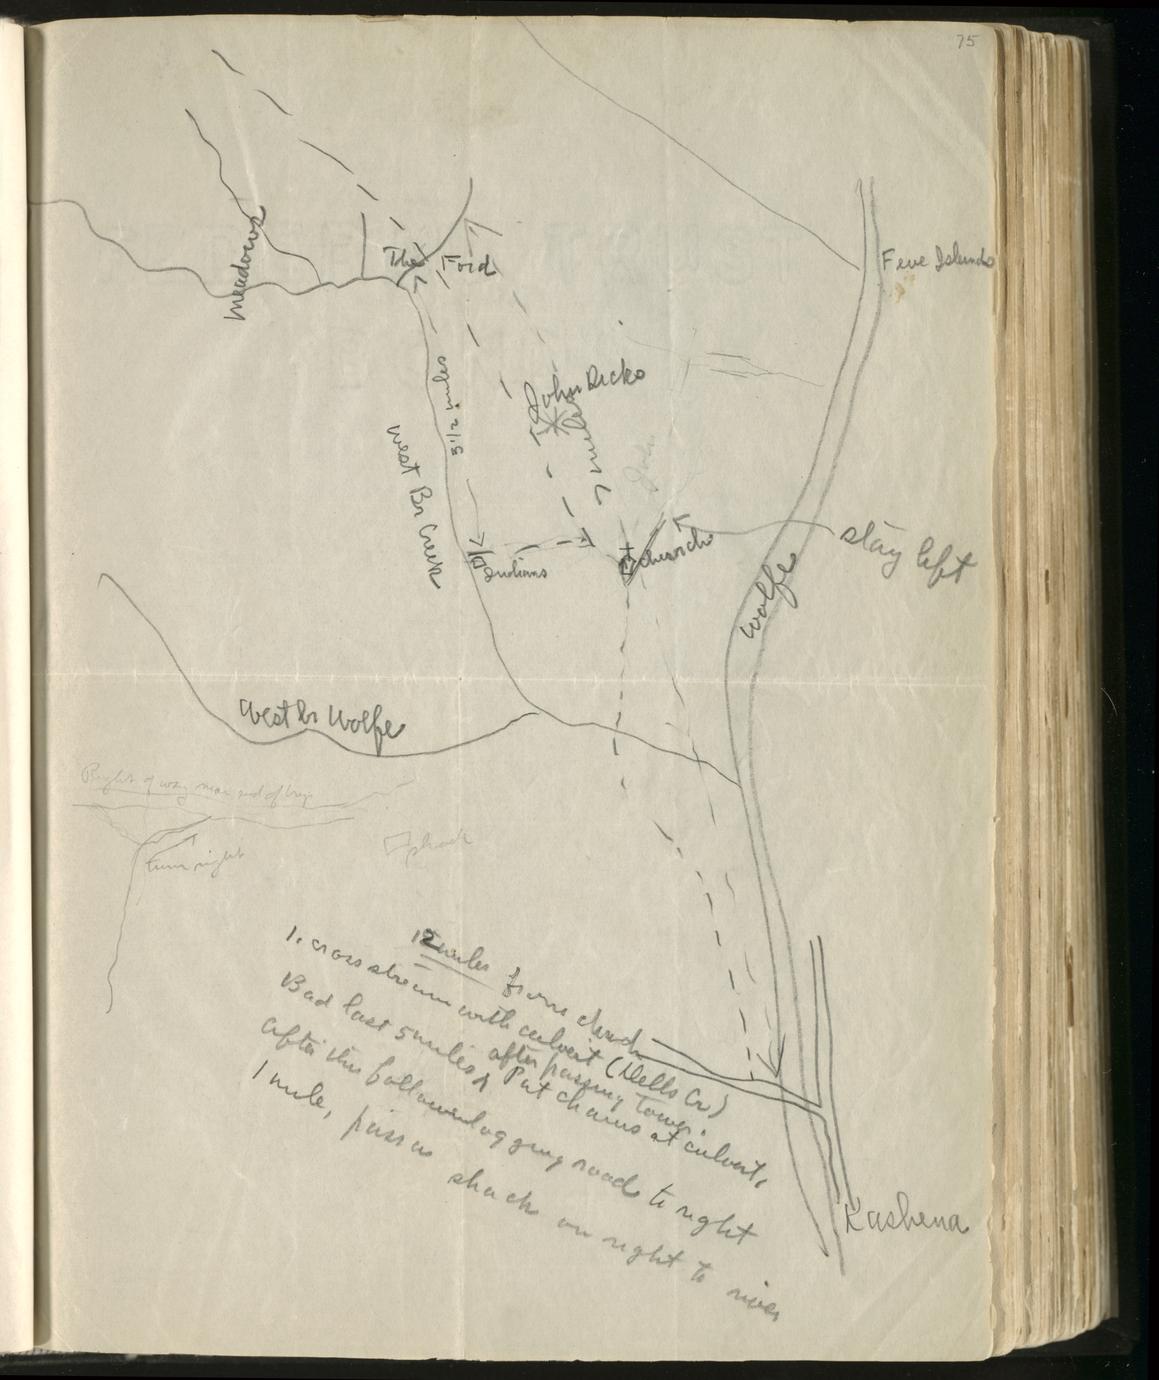 75
Five Islands
Meadows
The Ford
5 1/2 miles
John Dicks
West Br Creek
Indians
Church
stay left
Wolfe
West Br Wolfe
Right of way near end of
turn right
shack
12 miles from church
1. cross stream with culvert (Wells Cr)
after passing tower.
Bad last 5 miles. Put chains at culvert,
After this follow logging road to right
1 mile, pass
shack on right to river
Kashena